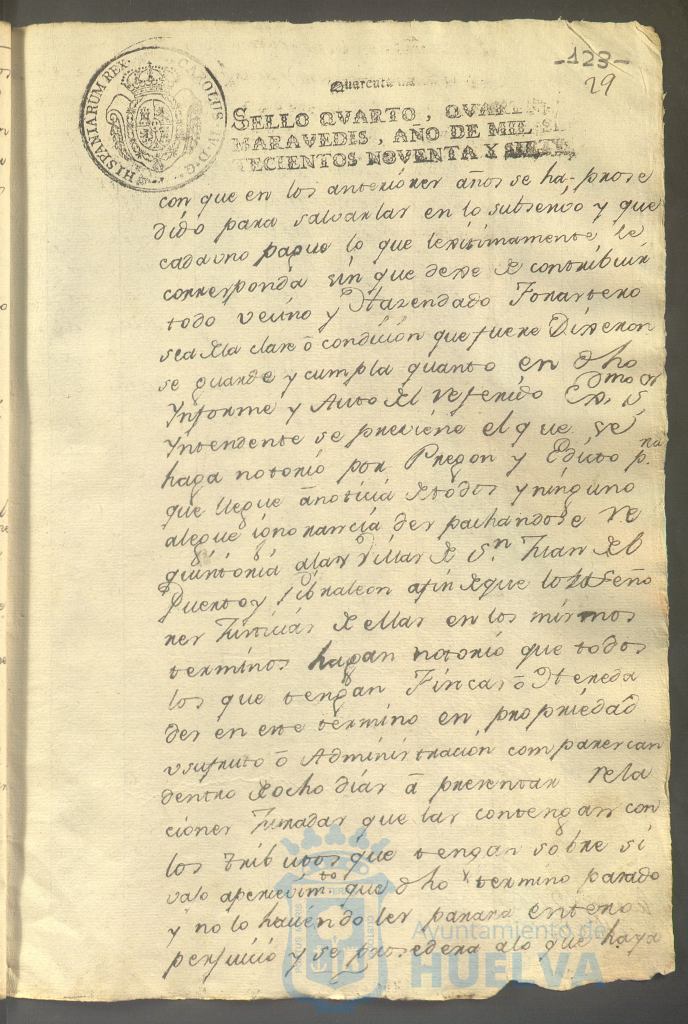 -123-
29
HISPANIARUM REX CAROLUS IV D.G.
Quarenta
SELLO QVARTO, QVAREN
MARAVEDIS, AÑO DE MIL SE
TECIENTOS NOVENTA Y SIETE
con que en los anteriores años se ha prose
dido para salvarlas en lo subsesivo y que
cada uno pague lo que lexitimamente le
corresponda sin que dexe de contribuir
todo vecino y Hazendado Forastero
sea de la clase ò condicion que fuere Dixeron
se guarde y cumpla quanto en dho
Ynforme y Auto del referido Exmo Sr
Yntendente se previene el que se
haga notorio por Pregon y Edicto pra
que llegue à noticia de todos y ninguno
alegue ignorancia despachandose re
quisitoria a las Villas de Sn Juan del
Puerto y Gibraleon a fin de que los Seño
res Justicias de ellas en los mismos
terminos hagan notorio que todos
los que tengan Fincas ò Hereda
des en este termino en propriedad
usufruto ò Administracion comparescan
dentro de ocho dias à presentar rela
ciones Juradas que las contengan con
los tributos que tengan sobre si
vajo apercevimto que dho termino pasado
y no lo haciendo les parara entero
perjuicio y se prosedera a lo que haya
Ayuntamiento de
HUELVA